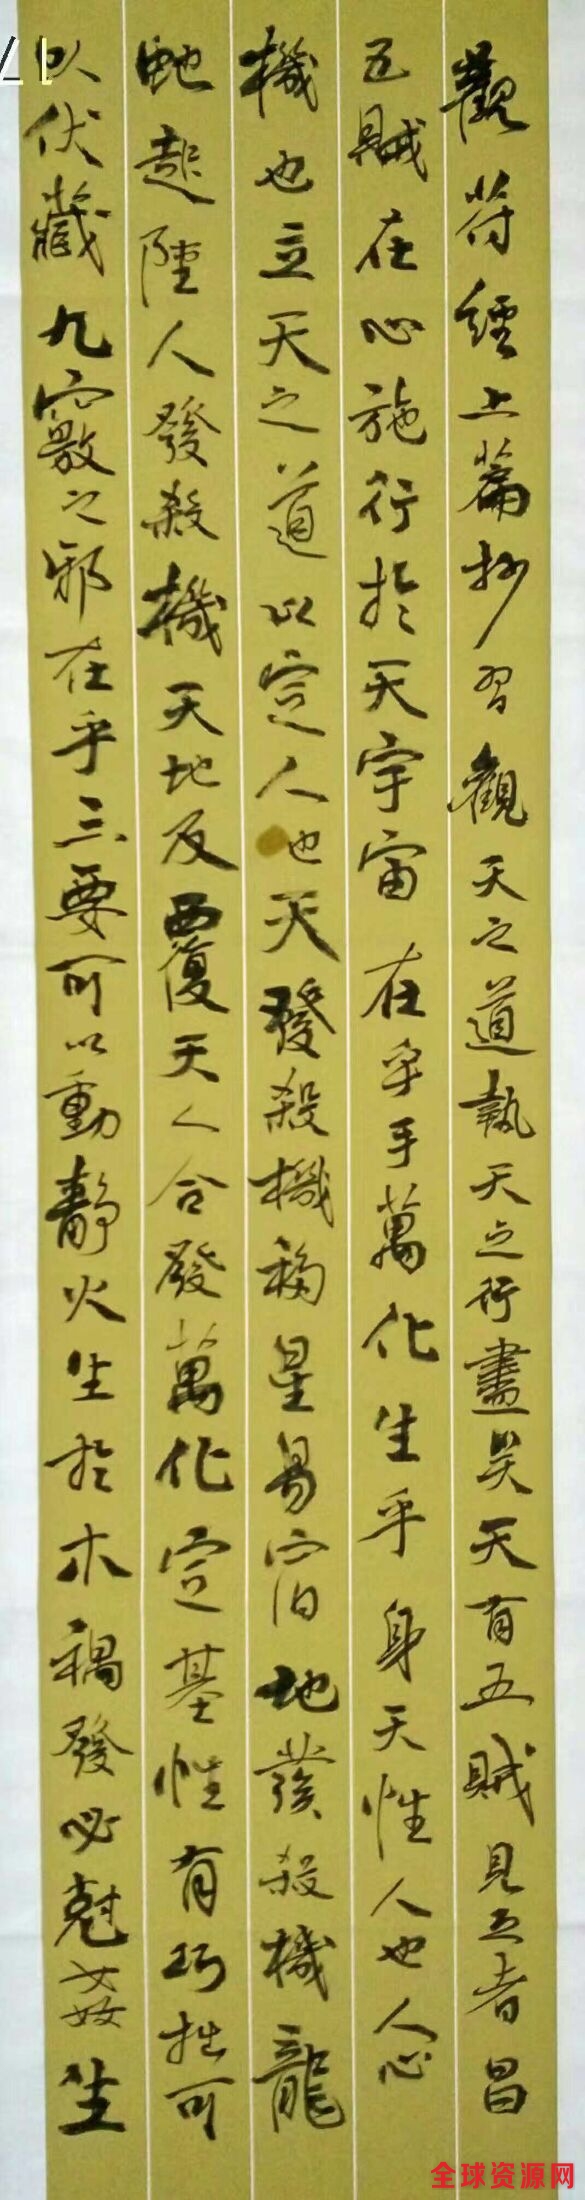 觀符經上篇抄習觀天之道執天之行盡矣天有五賊見之者昌
五賊在心施行於天宇宙在乎手萬化生乎身天性人也人心
機也立天之道以定人也天發殺機移星易宿地發殺機龍
虵起陸人發殺機天地反覆天人合發萬化定基性有巧拙可
以伏藏九竅之邪在乎三要可以動靜火生於木禍發必尅姦生
全球资源网